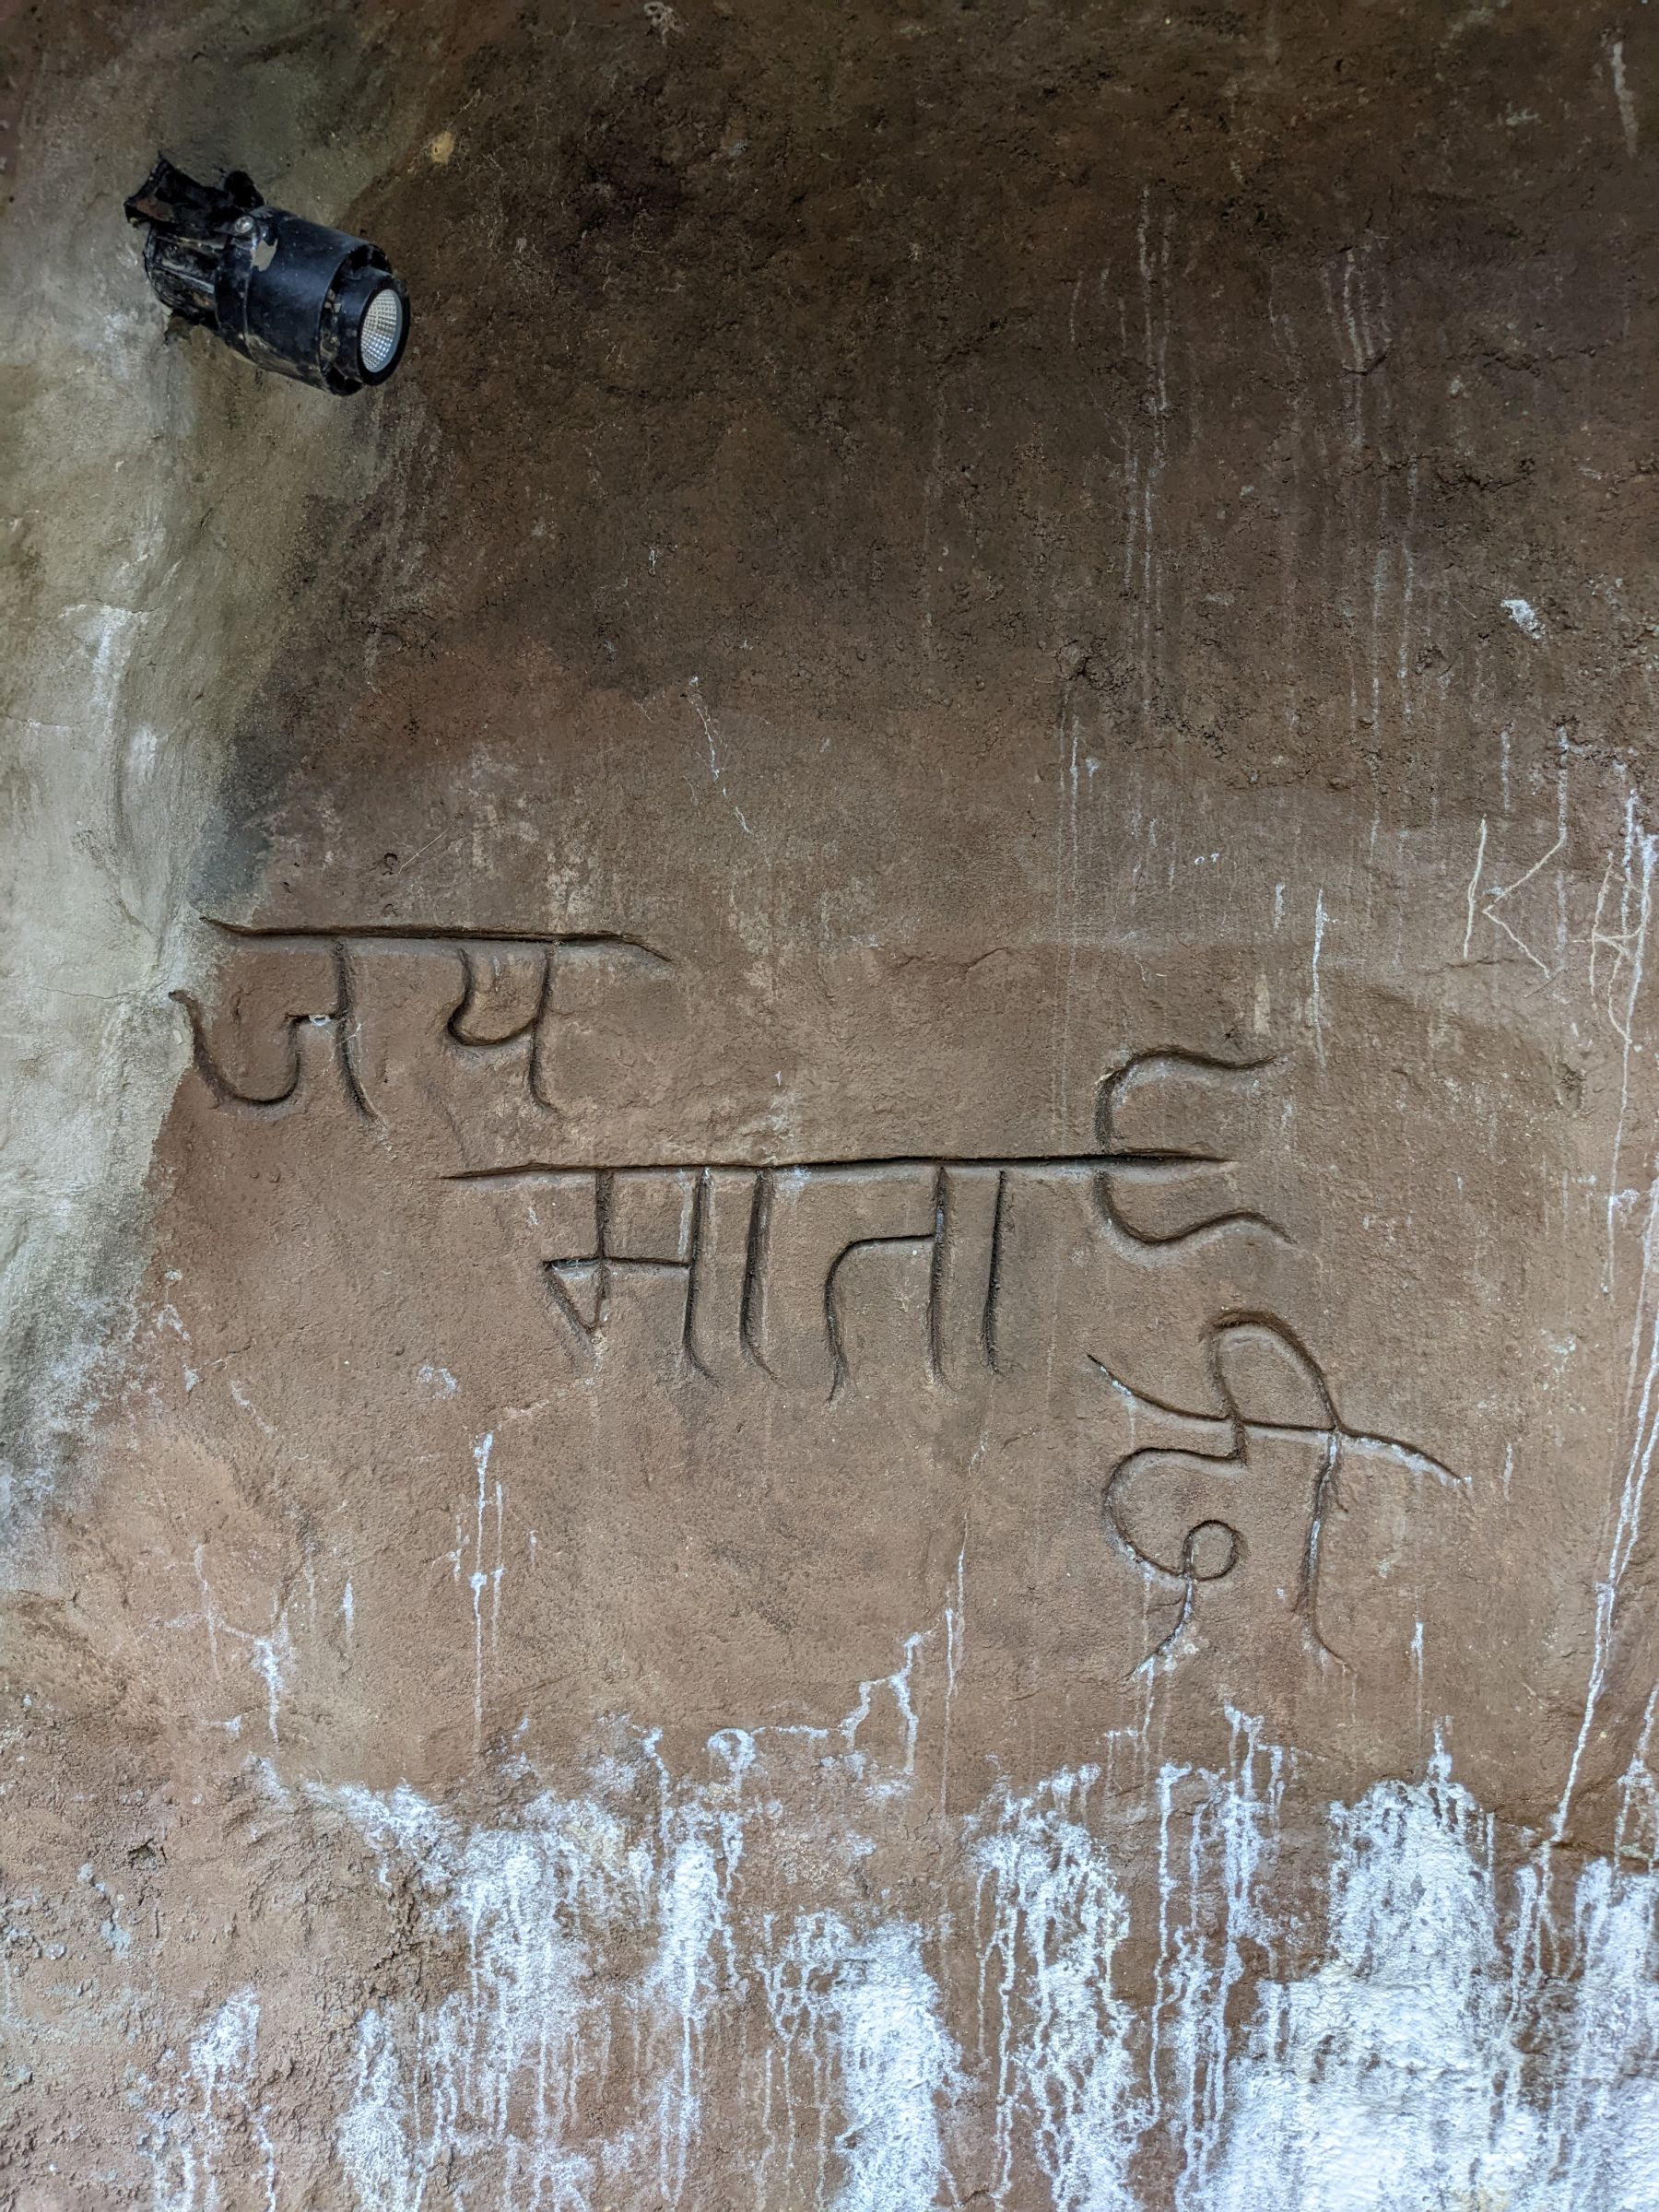 जय
माता
दी
K